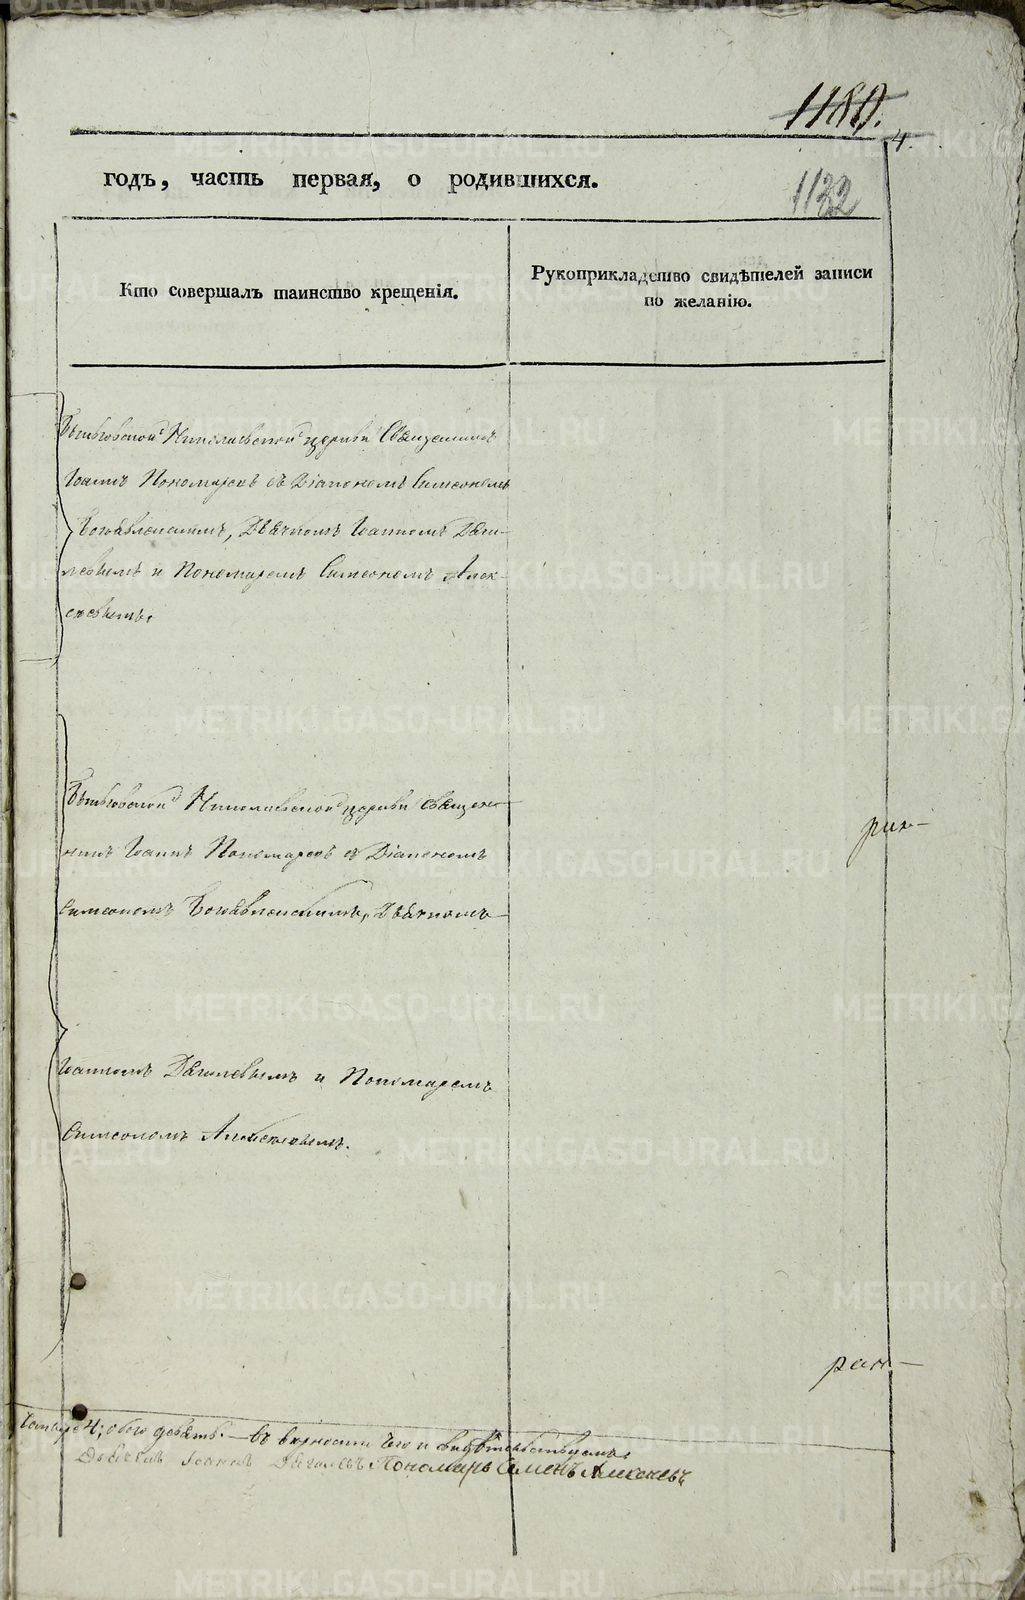 1180.
4.
годъ, часть первая, о родившихся.
1132
Кто совершалъ таинство крещенія.
Рукоприкладство свидѣтелей записи
по желанію.
Николаевской церкви Священникъ
Іоаннъ Пономаревъ съ Діакономъ Симеономъ
Богоявленскимъ, Дьячкомъ Іоанномъ Дяги-
левымъ и Пономаремъ Симеономъ Алек-
сѣевымъ.
Николаевской церкви Священ-
никъ Іоаннъ Пономаревъ съ Діакономъ
Симеономъ Богоявленскимъ, Дьячкомъ
Іоанномъ Дягилевымъ и Пономаремъ
Симеономъ Алексѣевымъ.
4; обоего девять. — Въ верности сего и свидѣтельствуемъ
Іоаннъ Дягилевъ Пономарь Семенъ Алексеевъ
METRIKI.GASO-URAL.RU